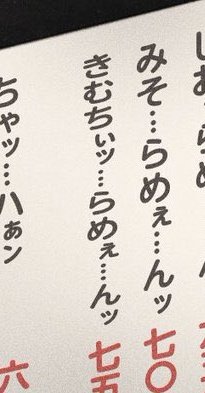 しお…らめ
みそ…らめぇ…んッ 七〇
きむちぃッ…らめぇ…んッ 七五
ちャッ…ハぁン 六